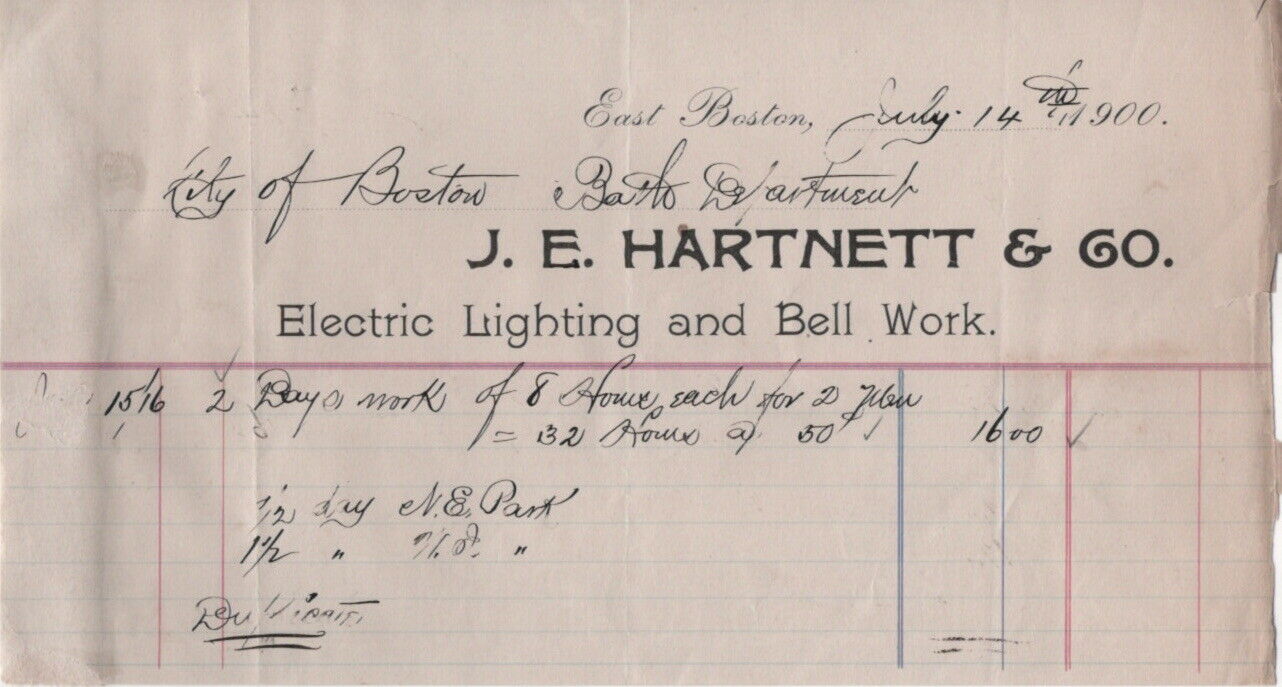 East Boston, July 14 1900.
City of Boston Bath Department
J. E. HARTNETT & CO.
Electric Lighting and Bell Work.
15/16 2 Days work of 8 Hours each for 2 Men
= 32 Hours @ 50¢ 16 00
1/2 day N. E. Park
1 1/2 " "
Duplicate